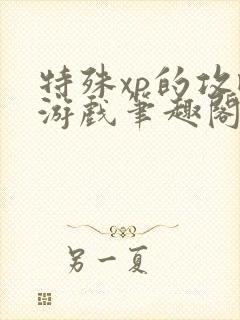 特殊xp的攻
游戏笔趣阁
另一夏